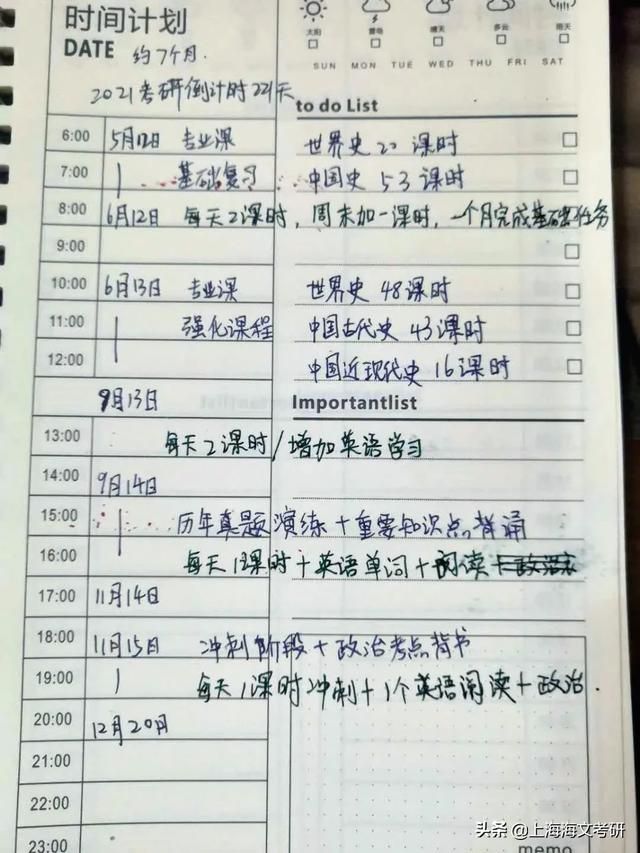 时间计划
DATE 约7个月.
太阳 雷电 晴天 多云 雨天
SUN MON TUE WED THU FRI SAT
2021考研倒计时221天
to do List
6:00 5月12日 专业课 世界史 22 课时
7:00 基础复习 中国史 53 课时
8:00 6月12日 每天2课时，周末加一课时，一个月完成基础任务
9:00
10:00 6月13日 专业课 世界史 48课时
11:00 强化课程 中国古代史 43课时
12:00 中国近现代史 16课时
9月13日 Importantlist
13:00 每天2课时/增加英语学习
14:00 9月14日
15:00 历年真题演练+重要知识点背诵
16:00 每天1课时+英语单词+阅读
17:00 11月14日
18:00 11月15日 冲刺阶段+政治考点背书
19:00 每天1课时冲刺+1个英语阅读+政治.
20:00 12月20日
21:00
22:00
23:00
memo
头条 @上海海文考研